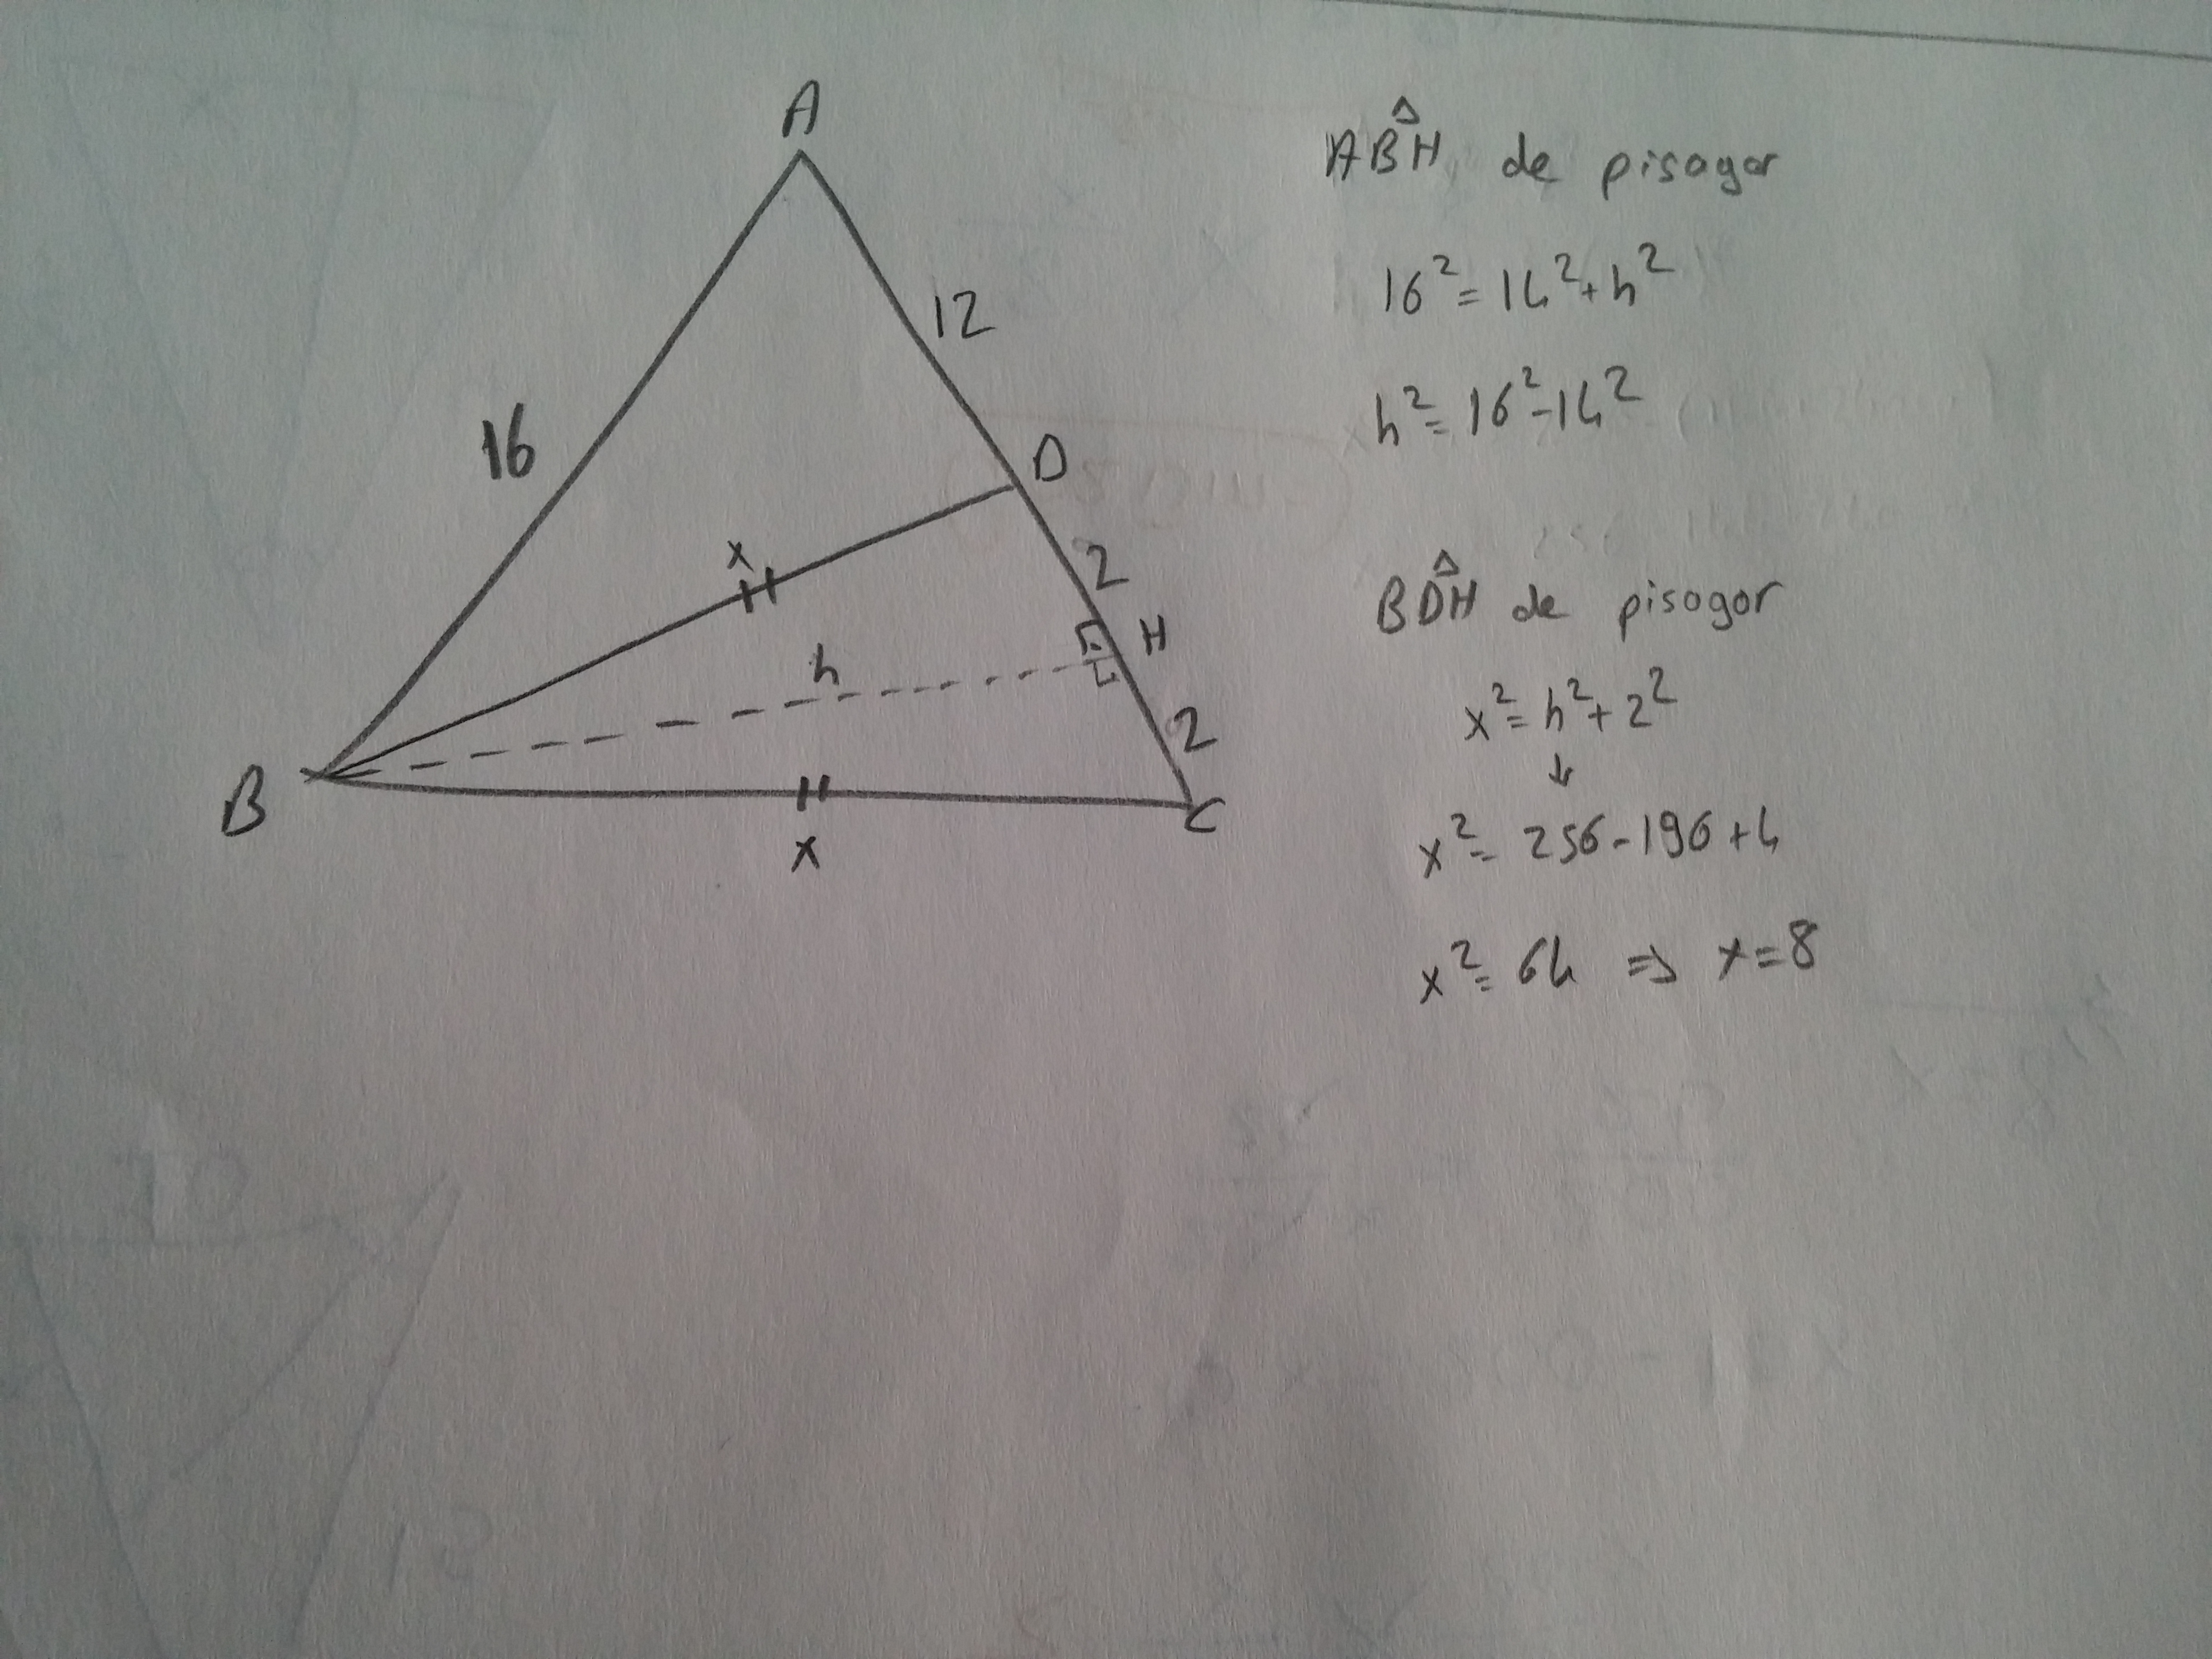 A
12
16
D
x
2
H
h
2
B
C
x
ABH de pisagor
16² = 14² + h²
h² = 16² - 14²
BDH de pisagor
x² = h² + 2²
↓
x² = 256 - 196 + 4
x² = 64 ⇒ x = 8